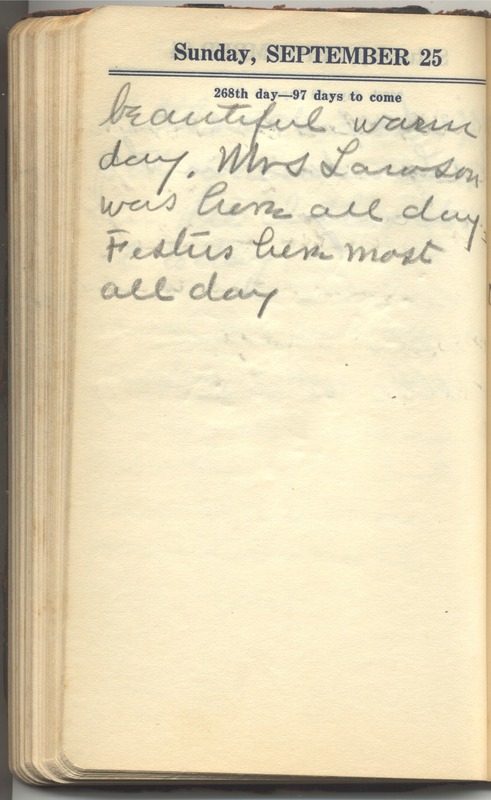 Sunday, SEPTEMBER 25
268th day—97 days to come
beautiful warm
day. Mrs Lawson
was here all day.
Festus here most
all day